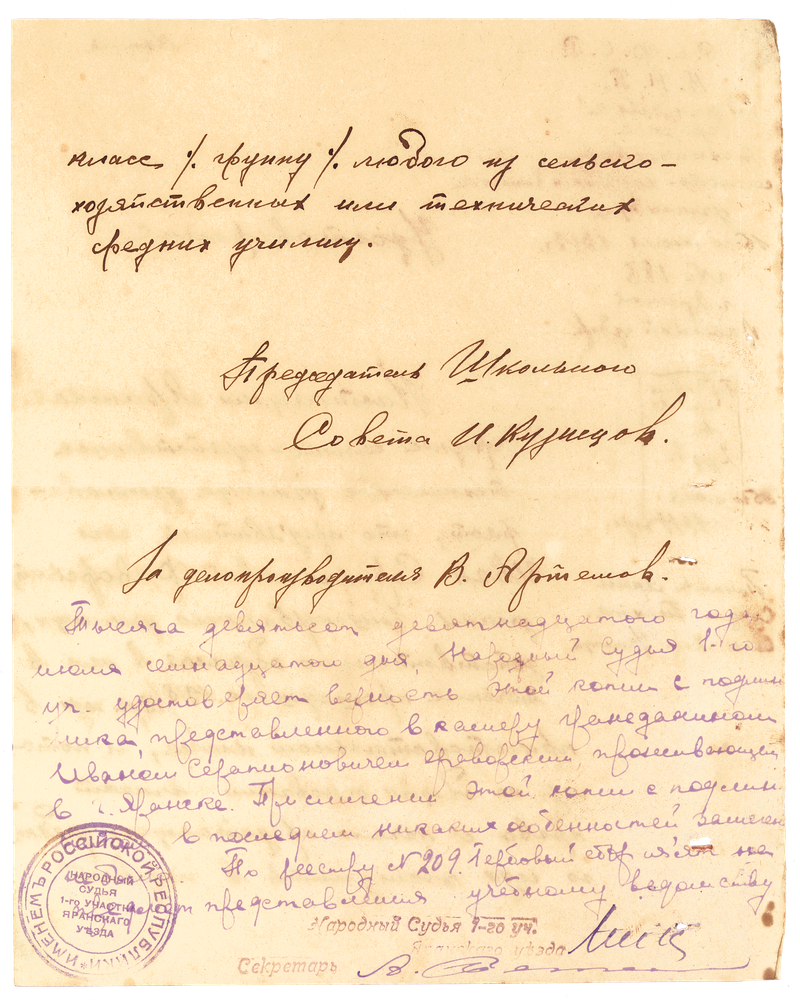 класс ./. группу ./. любого из сельско-
хозяйственных или технических
средних училищ.
Председатель Школьного
Совета И. Кузнецов.
За делопроизводителя В. Артемов.
Тысяча девятьсот девятнадцатого года
июля семнадцатого дня, Народный Судья 1-го
уч. удостоверяет верность этой копии с подлин
ника, представленного в камеру гражданином
Иваном Серапионовичем проживающим
в г. Яранске. При сличении этой копии с подлин
в последнем никаких особенностей замечен
По реестру № 209. Гербовый сбор из'ят на
представления учебному ведомству
Народный Судья 1-го уч.
Яранскаго уѣзда
Секретарь
ИМЕНЕМЪ РОССІЙСКОЙ РЕСПУБЛИКИ
НАРОДНЫЙ
СУДЬЯ
1-го УЧАСТКА
ЯРАНСКАГО
УѢЗДА